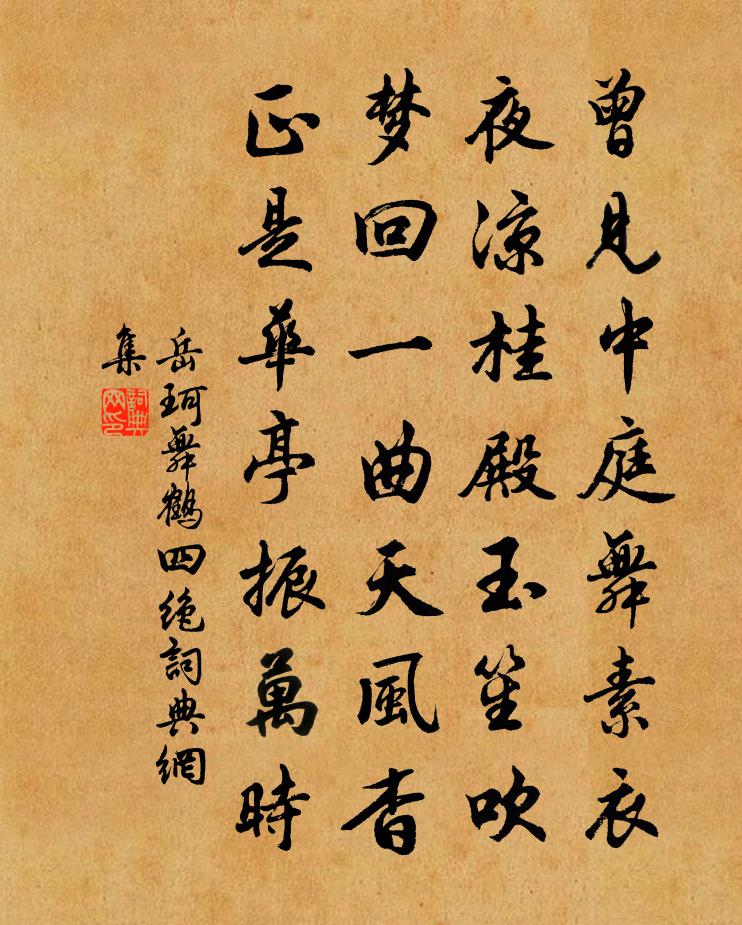 曾見中庭舞素衣
夜涼桂殿玉笙吹
梦回一曲天風杳
正是華亭振萬時
岳珂舞鶴四绝詞典網
集
詞典
网印